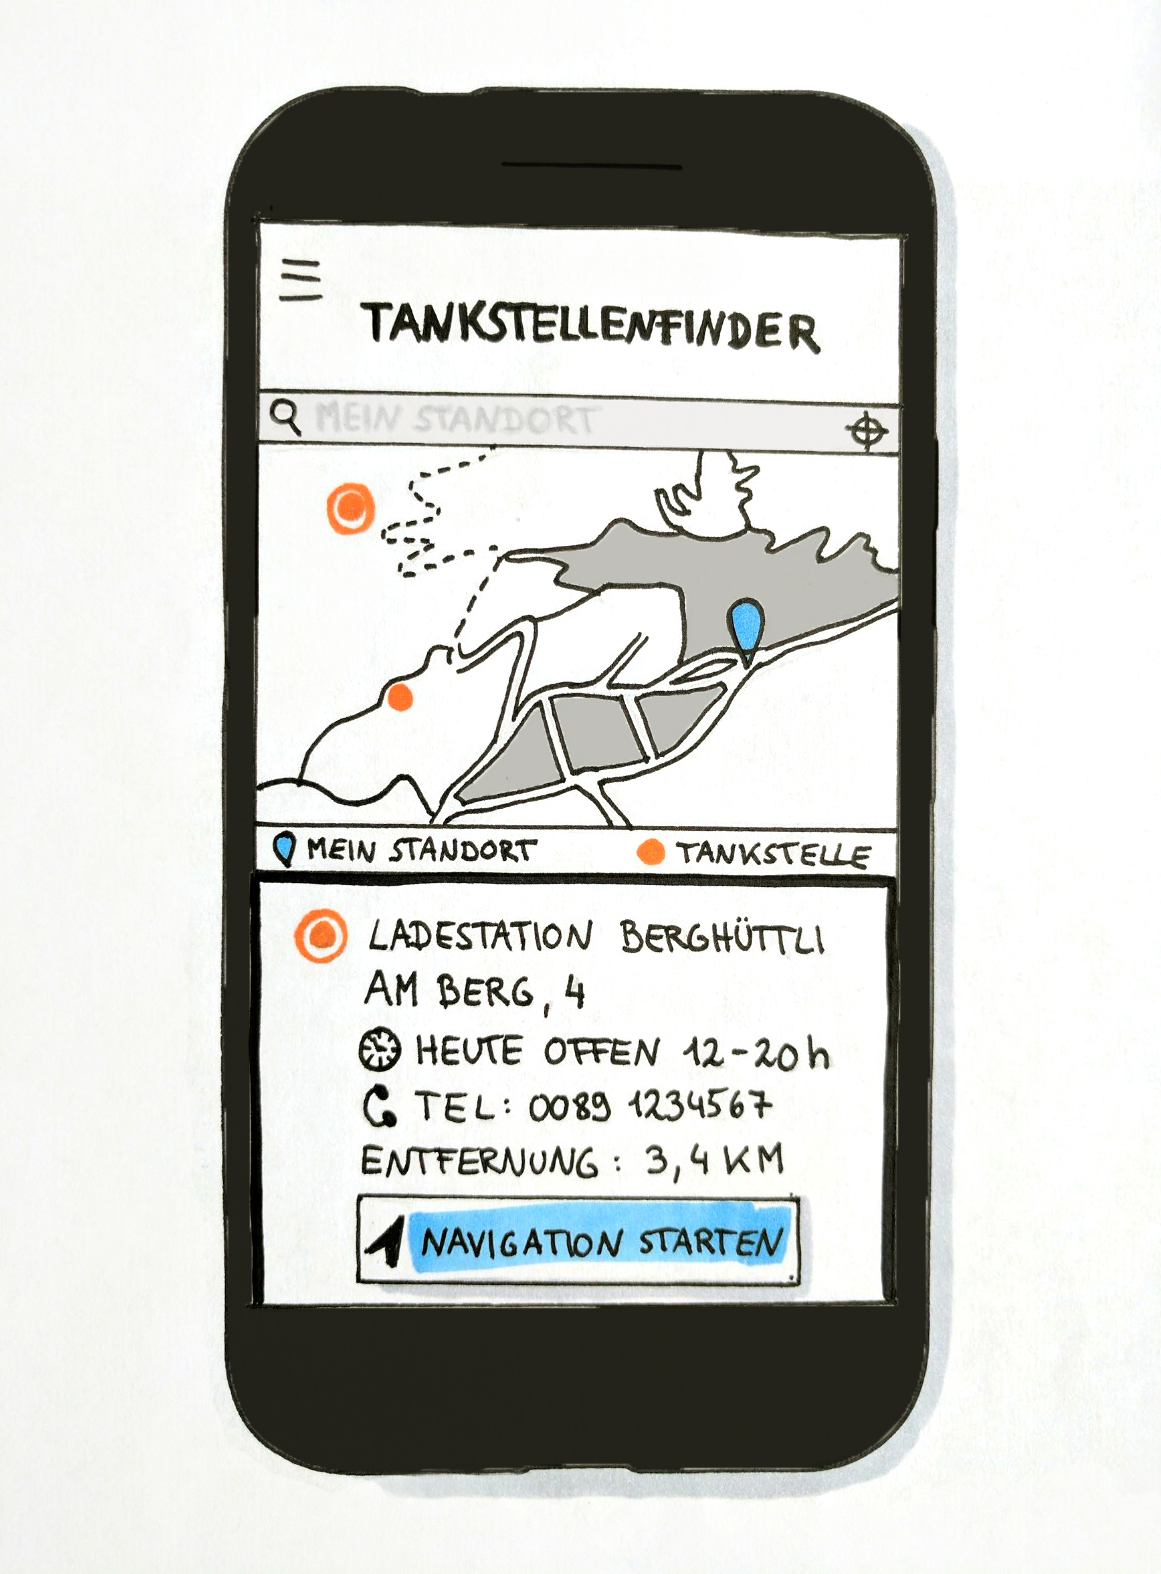 TANKSTELLENFINDER
MEIN STANDORT
MEIN STANDORT TANKSTELLE
LADESTATION BERGHÜTTLI
AM BERG, 4
HEUTE OFFEN 12-20h
TEL: 0089 1234567
ENTFERNUNG: 3,4 KM
NAVIGATION STARTEN